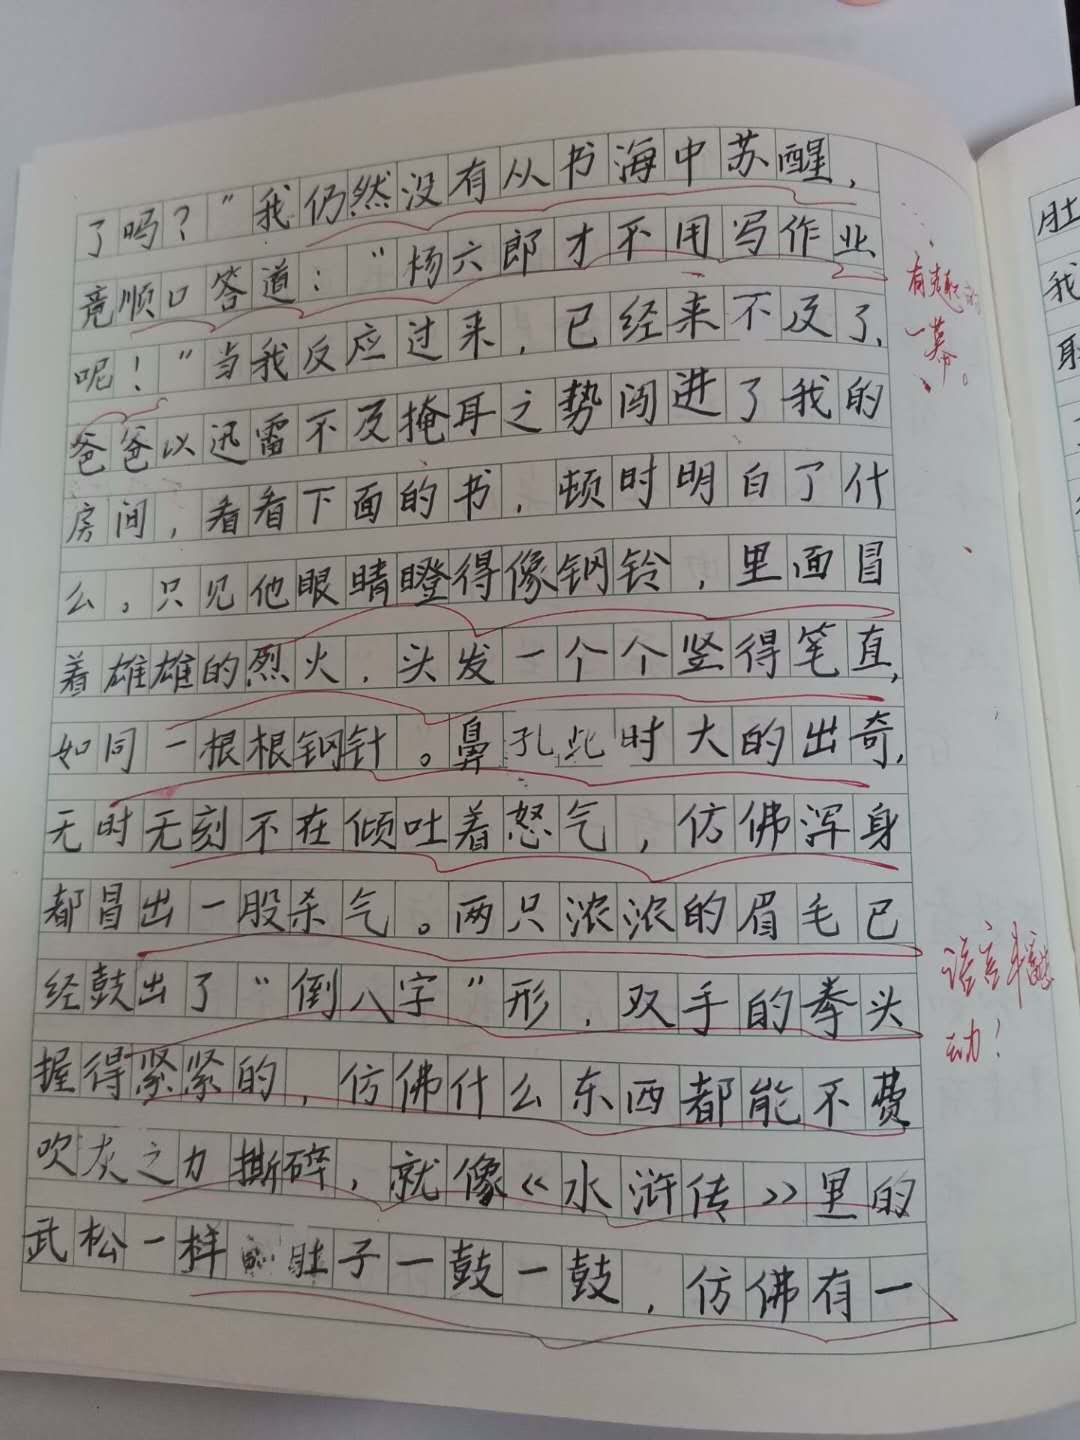 了吗？"我仍然没有从书海中苏醒，
竟顺口答道："杨六郎才不用写作业
呢！"当我反应过来，已经来不及了，
爸爸以迅雷不及掩耳之势闯进了我的
房间，看看下面的书，顿时明白了什
么，只见他眼睛瞪得像钢铃，里面冒
着雄雄的烈火，头发一个个竖得笔直，
如同一根根钢针。鼻孔此时大的出奇，
无时无刻不在倾吐着怒气，仿佛浑身
都冒出一股杀气。两只浓浓的眉毛已
经鼓出了"倒八字"形，双手的拳头
握得紧紧的，仿佛什么东西都能不费
吹灰之力撕碎，就像《水浒传》里的
武松一样 肚子一鼓一鼓，仿佛有一
有趣的
一幕。
语言生动！
肚
我